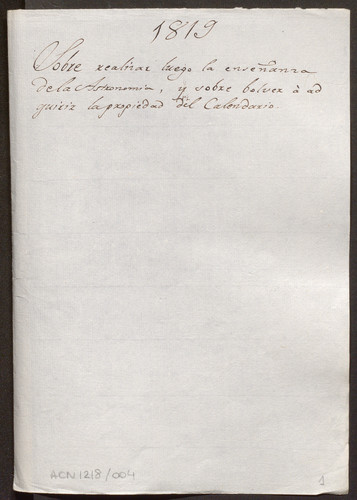 1819
Sobre realizar luego la enseñanza
de la Astronomia, y sobre bolver à ad
quirir la propiedad del Calendario.
ACN1218/004
1